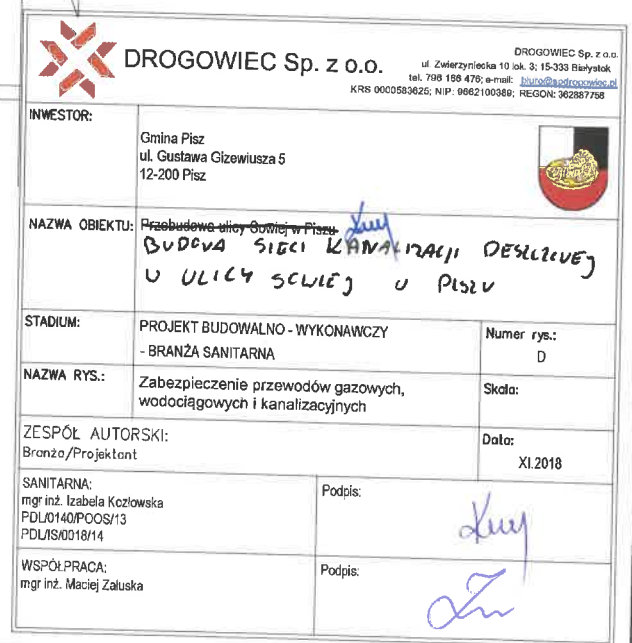 DROGOWIEC Sp. z o.o.
DROGOWIEC Sp. z o.o.
ul. Zwierzyniecka 10 lok. 3; 15-333 Białystok
tel. 798 186 476; e-mail: biuro@spdrogowiec.pl
KRS 0000583625; NIP: 9662100389; REGON: 362887758
INWESTOR:
Gmina Pisz
ul. Gustawa Gizewiusza 5
12-200 Pisz
NAZWA OBIEKTU:
Przebudowa ulicy Sowiej w Piszu
BUDOWA SIECI KANALIZACJI DESZCZOWEJ
W ULICY SOWIEJ W PISZU
STADIUM:
PROJEKT BUDOWALNO - WYKONAWCZY
- BRANŻA SANITARNA
Numer rys.:
D
NAZWA RYS.:
Zabezpieczenie przewodów gazowych,
wodociągowych i kanalizacyjnych
Skala:
ZESPÓŁ AUTORSKI:
Branża/Projektant
Data:
XI.2018
SANITARNA:
mgr inż. Izabela Kozłowska
PDL/0140/POOS/13
PDL/IS/0018/14
Podpis:
WSPÓŁPRACA:
mgr inż. Maciej Załuska
Podpis: